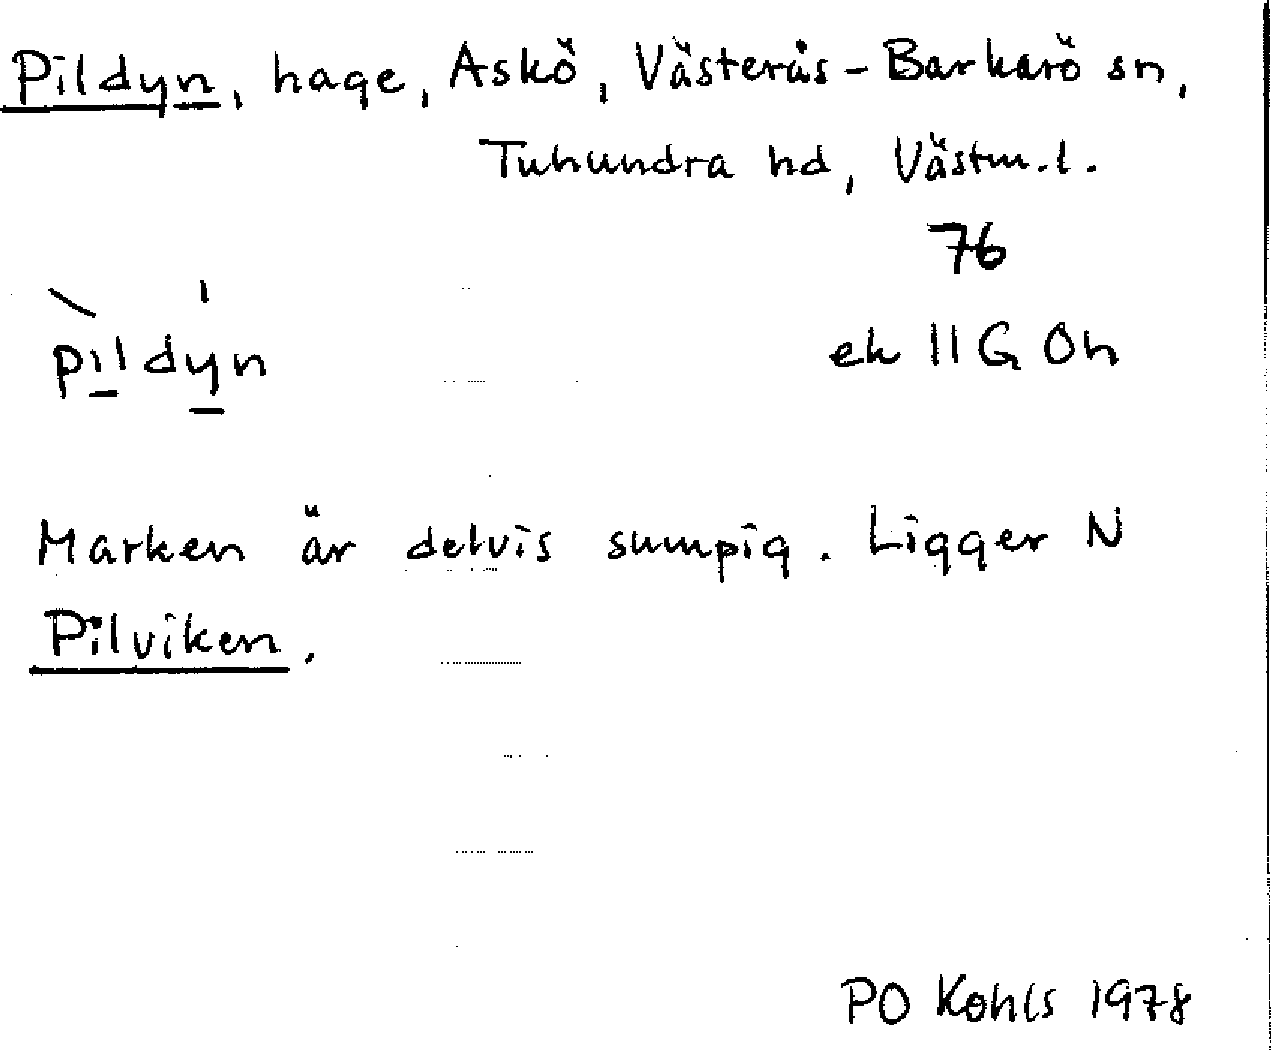 Pildyn, hage, Askö, Västerås-Barkarö sn,
Tuhundra hd, Västm.l.
76
pìldýn
ek 11G 0h
Marken är delvis sumpig. Ligger N
Pilviken.
PO Kohls 1978